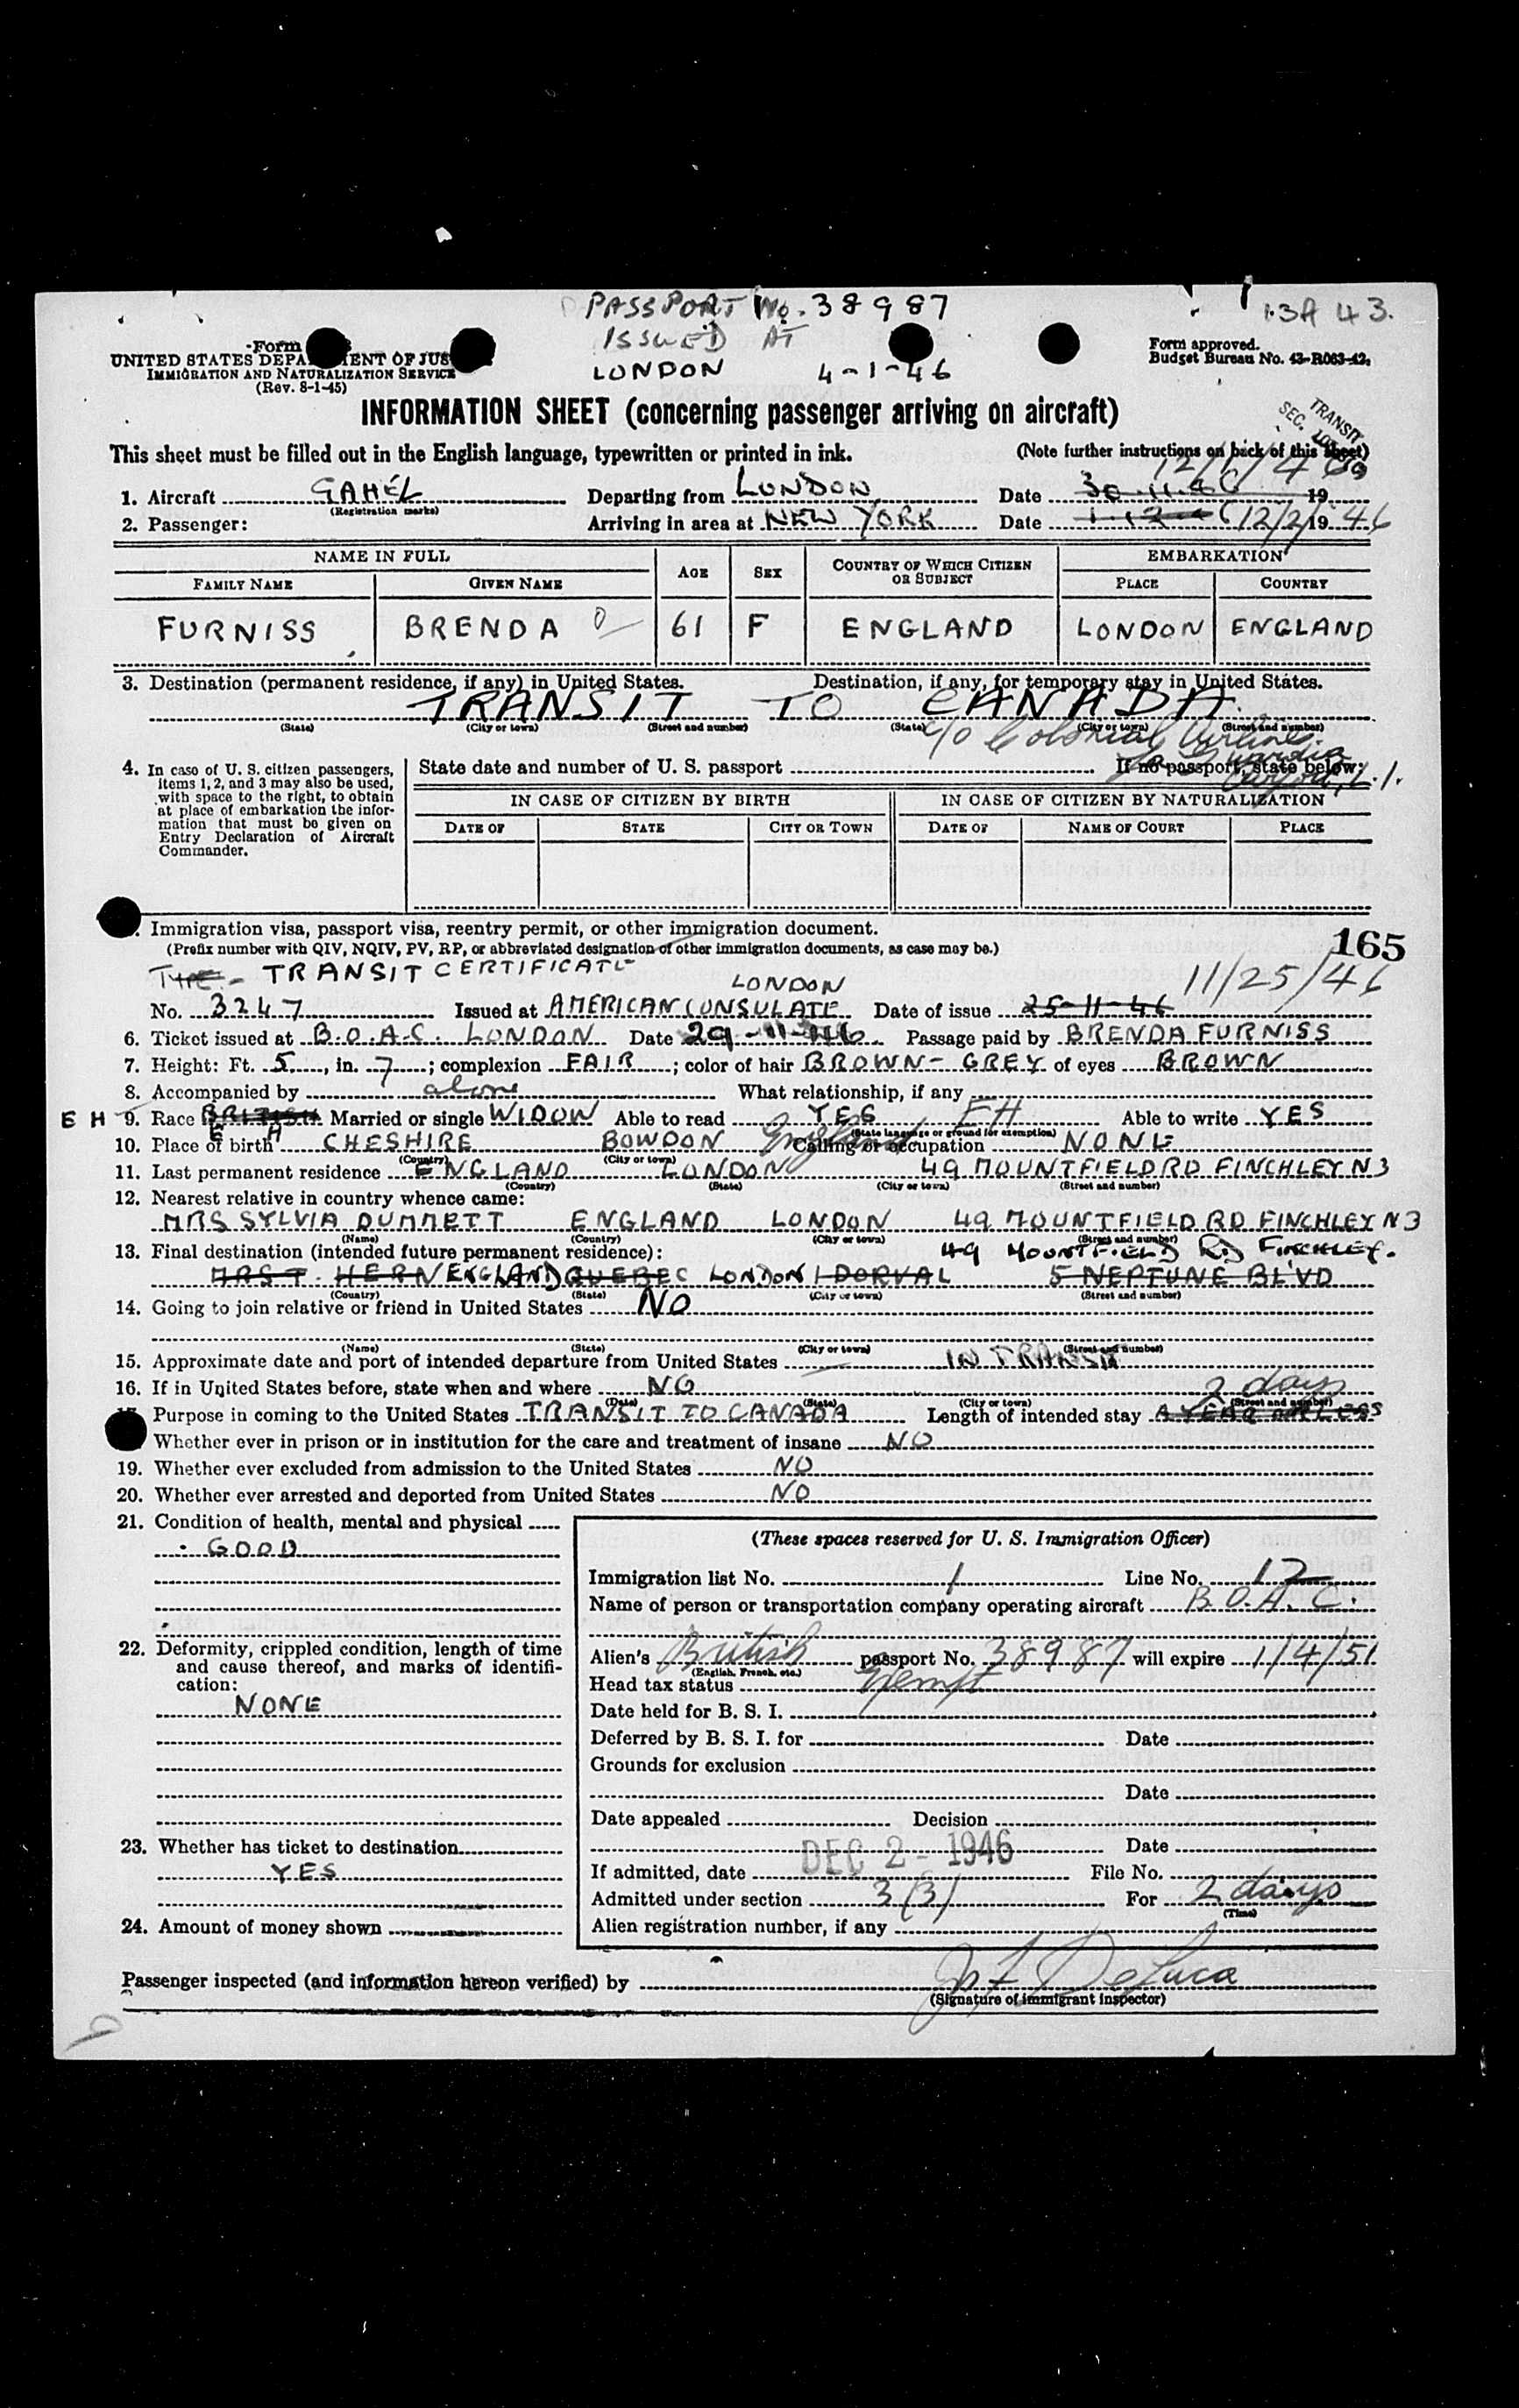 PASSPORT No. 38987
ISSUED AT
LONDON 4-1-46
13A 43.
Form
UNITED STATES DEPA ENT OF JUS
IMMIGRATION AND NATURALIZATION SERVICE
(Rev. 8-1-45)
Form approved.
Budget Bureau No. 43-R063-42.
INFORMATION SHEET (concerning passenger arriving on aircraft)
TRANSIT
SEC.
This sheet must be filled out in the English language, typewritten or printed in ink. (Note further instructions on back of this sheet)
12/1/46
1. Aircraft GAHEL Departing from LONDON Date 30-11-46 19
(Registration marks)
2. Passenger: Arriving in area at NEW YORK Date 1-12-46 12/2/1946
NAME IN FULL AGE SEX COUNTRY OF WHICH CITIZEN OR SUBJECT EMBARKATION
FAMILY NAME GIVEN NAME PLACE COUNTRY
FURNISS BRENDA 61 F ENGLAND LONDON ENGLAND
3. Destination (permanent residence, if any) in United States. Destination, if any, for temporary stay in United States.
TRANSIT TO CANADA.
(State) (City or town) (Street and number) (State) (City or town) (Street and number)
c/o Colonial Airlines
La Guardia
Airport, L.I.
4. In case of U. S. citizen passengers, items 1, 2, and 3 may also be used, with space to the right, to obtain at place of embarkation the information that must be given on Entry Declaration of Aircraft Commander.
State date and number of U. S. passport If no passport, state below:
IN CASE OF CITIZEN BY BIRTH IN CASE OF CITIZEN BY NATURALIZATION
DATE OF STATE CITY OR TOWN DATE OF NAME OF COURT PLACE
Immigration visa, passport visa, reentry permit, or other immigration document.
(Prefix number with QIV, NQIV, PV, RP, or abbreviated designation of other immigration documents, as case may be.)
165
TYPE - TRANSIT CERTIFICATE
LONDON 11/25/46
No. 3247 Issued at AMERICAN CONSULATE Date of issue 25-11-46
6. Ticket issued at B.O.A.C. LONDON Date 29-11-46 Passage paid by BRENDA FURNISS
7. Height: Ft. 5, in. 7; complexion FAIR; color of hair BROWN-GREY of eyes BROWN
8. Accompanied by alone What relationship, if any
E H 9. Race BRITISH Married or single WIDOW Able to read YES EH Able to write YES
E H (State language or ground for exemption)
10. Place of birth CHESHIRE BOWDON England Calling or occupation NONE
(Country) (City or town)
11. Last permanent residence ENGLAND LONDON 49 MOUNTFIELD RD FINCHLEY N3
(Country) (State) (City or town) (Street and number)
12. Nearest relative in country whence came:
MRS SYLVIA DUMMETT ENGLAND LONDON 49 MOUNTFIELD RD FINCHLEY N3
(Name) (Country) (City or town) (Street and number)
13. Final destination (intended future permanent residence): 49 MOUNTFIELD RD FINCHLEY.
MRS T. HERN ENGLAND QUEBEC LONDON DORVAL 5 NEPTUNE BLVD
(Country) (State) (City or town) (Street and number)
14. Going to join relative or friend in United States NO
(Name) (State) (City or town) (Street and number)
15. Approximate date and port of intended departure from United States IN TRANSIT
16. If in United States before, state when and where NO 2 days
(Date) (State) (City or town) (Street and number)
Purpose in coming to the United States TRANSIT TO CANADA Length of intended stay A YEAR OR LESS
Whether ever in prison or in institution for the care and treatment of insane NO
19. Whether ever excluded from admission to the United States NO
20. Whether ever arrested and deported from United States NO
21. Condition of health, mental and physical
GOOD
22. Deformity, crippled condition, length of time and cause thereof, and marks of identification:
NONE
23. Whether has ticket to destination
YES
24. Amount of money shown
(These spaces reserved for U. S. Immigration Officer)
Immigration list No. 1 Line No. 12
Name of person or transportation company operating aircraft B.O.A.C.
Alien's British passport No. 38987 will expire 1/4/51
(English, French, etc.)
Head tax status Exempt
Date held for B. S. I.
Deferred by B. S. I. for Date
Grounds for exclusion
Date
Date appealed Decision
Date
If admitted, date DEC 2 - 1946 File No.
Admitted under section 3(3) For 2 days
(Time)
Alien registration number, if any
Passenger inspected (and information hereon verified) by DeLuca
(Signature of immigrant inspector)